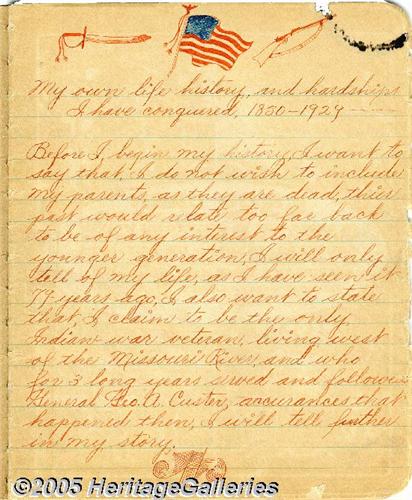 My own life history, and hardships
I have conquered, 1850-1929
Before I begin my history, I want to
say that I do not wish to include
my parents, as they are dead, their
past would relate too far back
to be of any interest to the
younger generation, I will only
tell of my life, as I have seen it
79 years ago, I also want to state
that I claim to be the only
Indian war veteran, living west
of the Missouri River, and who
for 3 long years served and followed
General Geo. A. Custer, accurances that
happened then, I will tell further
in my story.
©2005 HeritageGalleries